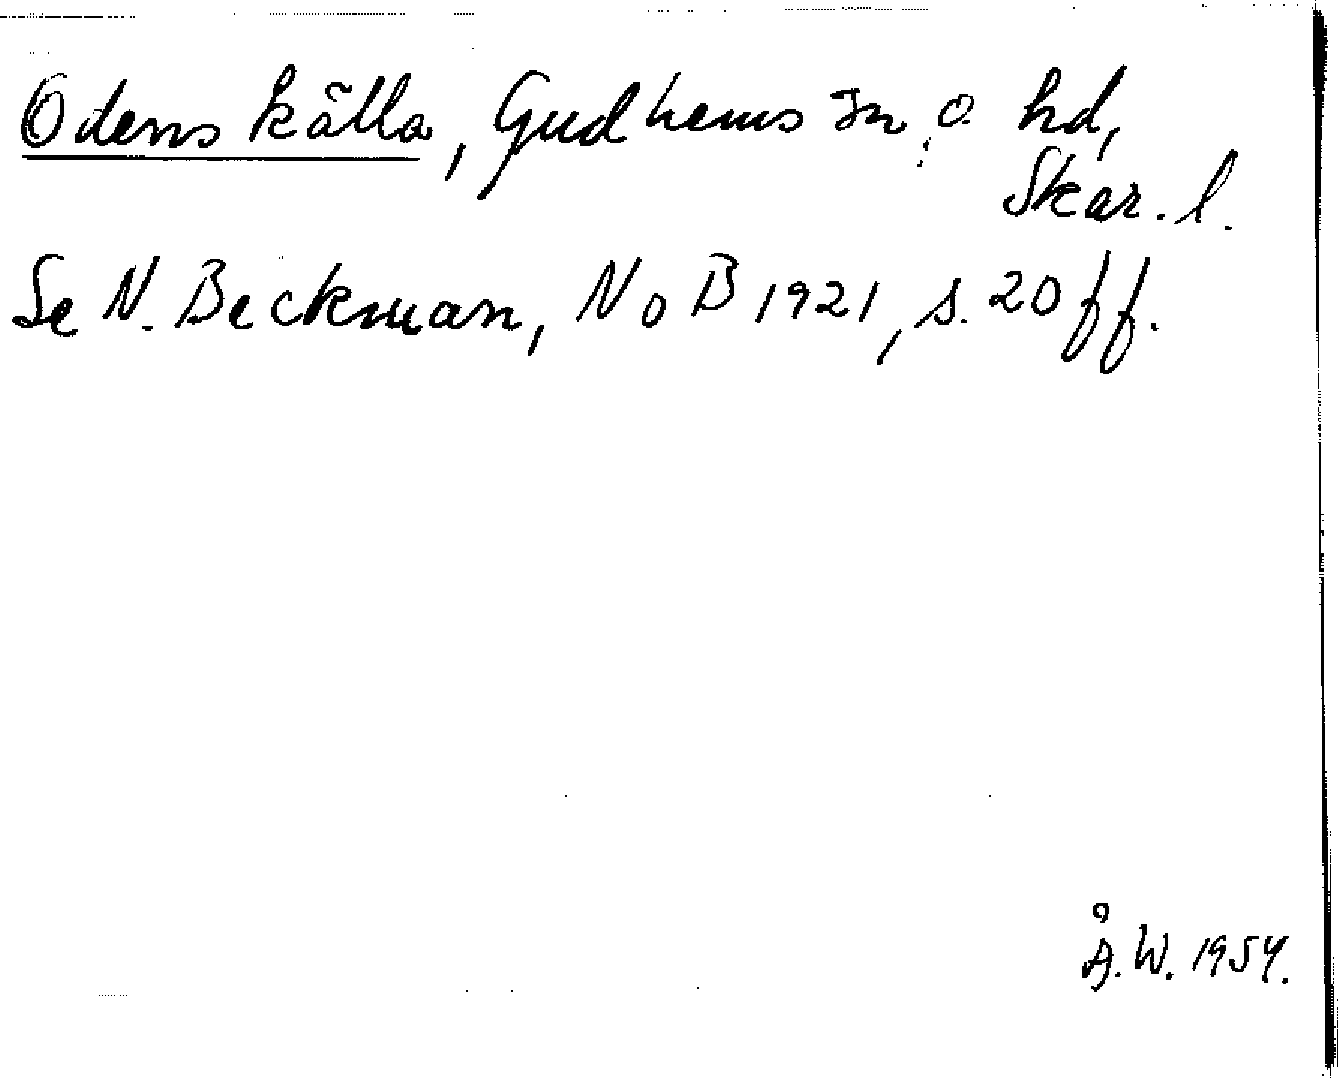 Odens källa, Gudhems sn o hd,
Skar. l.
Se N. Beckman, NoB 1921, s. 20 ff.
Å.W. 1954.